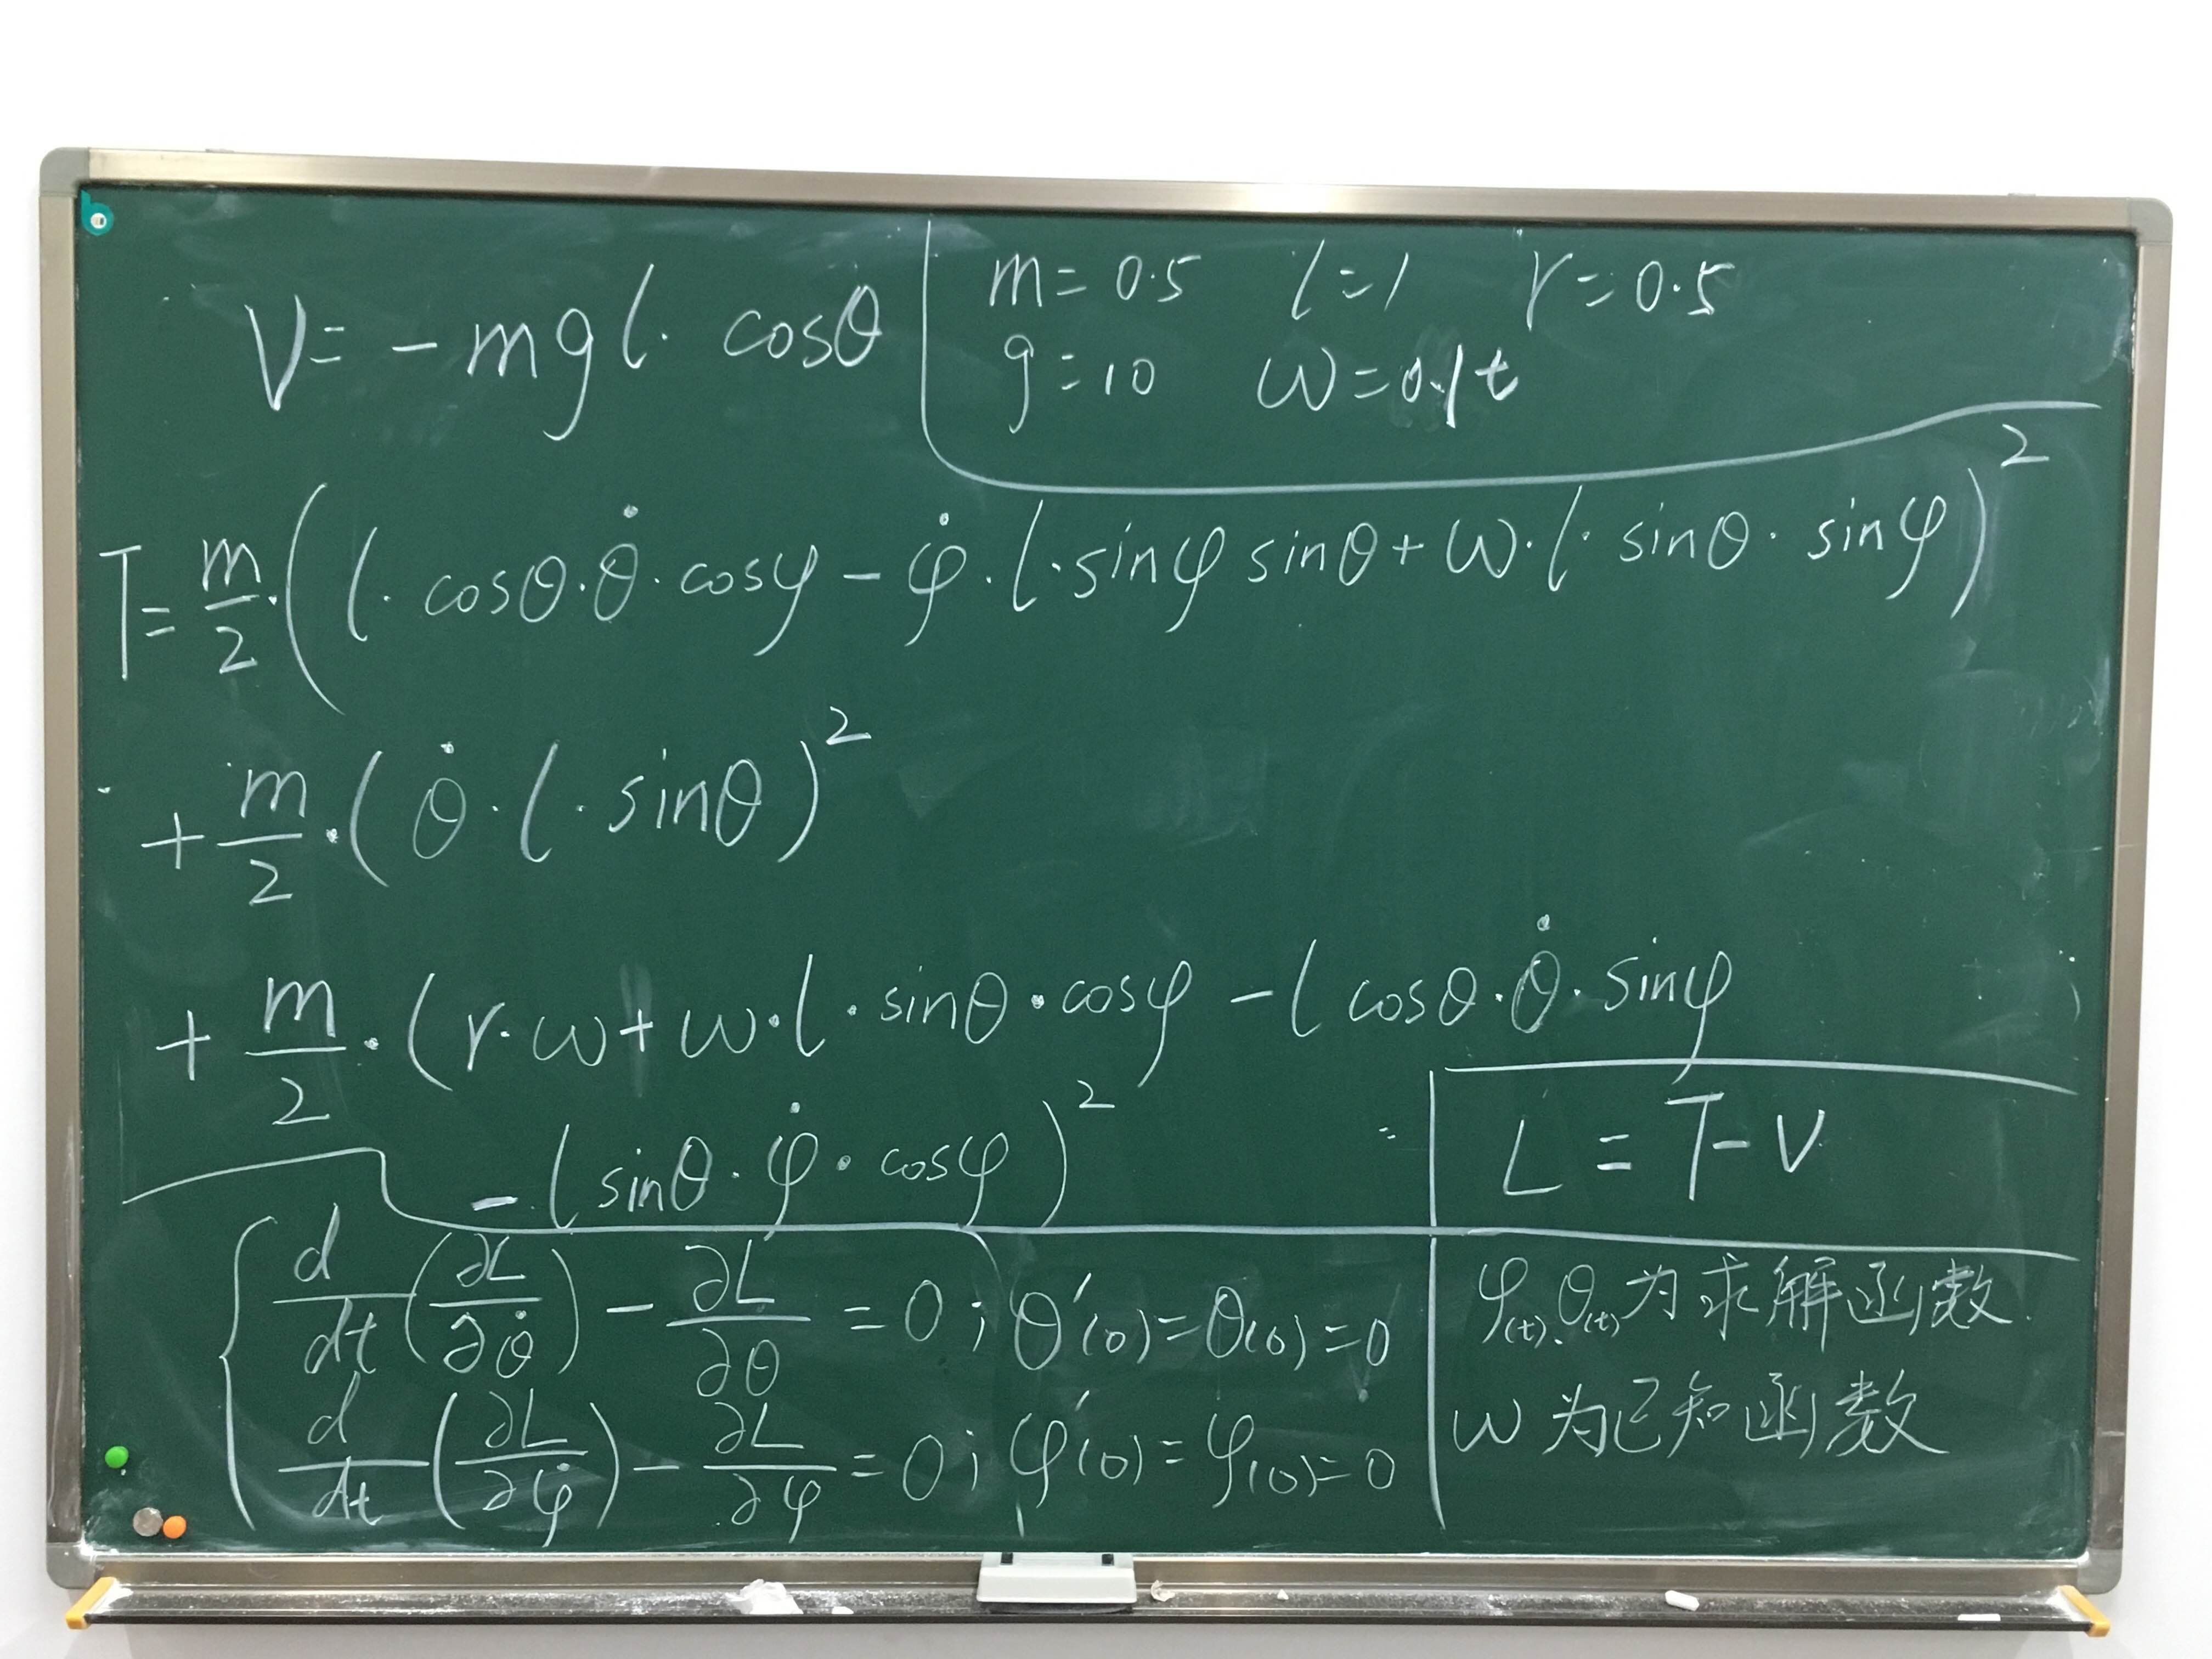 V = -mgl· cosθ
m = 0.5 l = 1 r = 0.5
g = 10 ω = 0.1t
T = m/2·(l·cosθ·θ̇·cosφ - φ̇·l·sinφ sinθ + ω·l·sinθ·sinφ)²
+ m/2·(θ̇·l·sinθ)²
+ m/2·(r·ω + ω·l·sinθ·cosφ - l cosθ·θ̇·sinφ
- l sinθ·φ̇·cosφ)²
L = T - V
d/dt(∂L/∂θ̇) - ∂L/∂θ = 0; θ′(0) = θ(0) = 0
d/dt(∂L/∂φ̇) - ∂L/∂φ = 0; φ′(0) = φ(0) = 0
φ(t)、θ(t)为求解函数.
ω 为已知函数